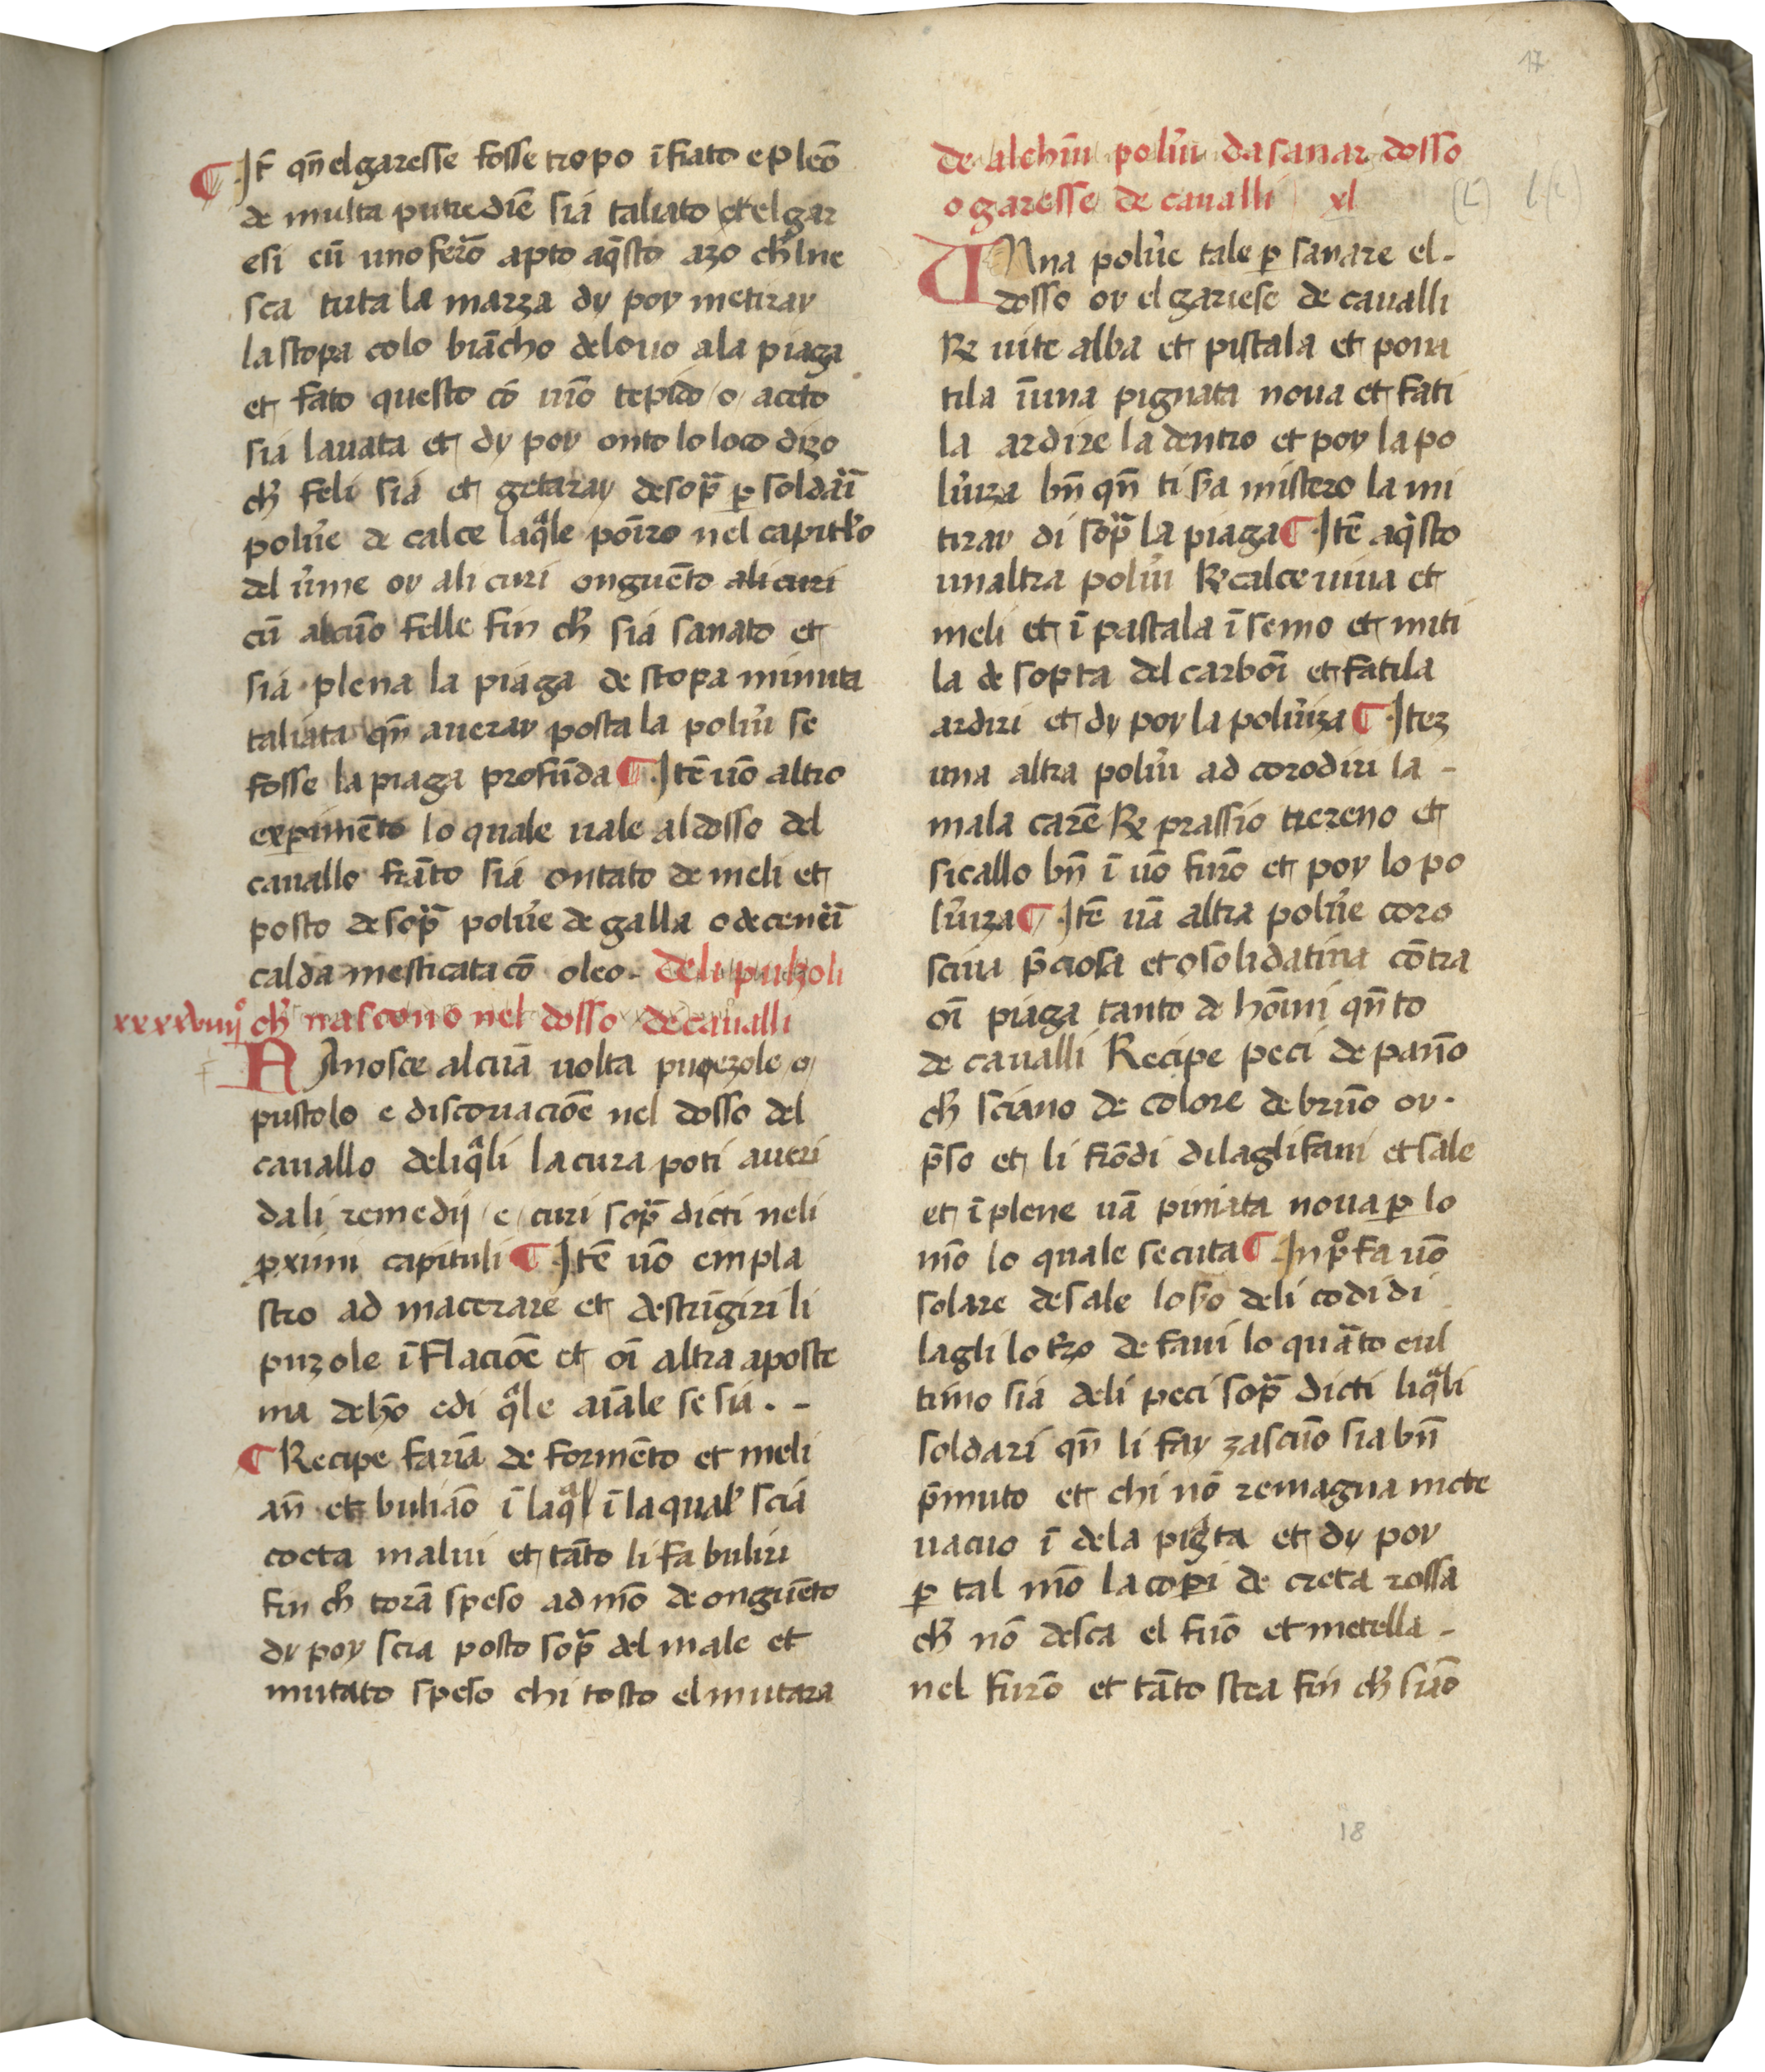 ¶ It̄ qn̄ el garesse fosse tropo ı̄fiato e pleō
de multa putrediē sia taliato et el gar
esi cū uno ferō apto aq̄sto azo ch̄ lne
sca tuta la marza dy poy metiray
la stopa colo biācho delouo ala piaga
et fato questo cō uīo tepido / o / aceto
sia lauata et dy poy onto lo loco dizo
ch̄ feli sia et getaray desop̄ꝛ ꝑ soldaꝛı̄
polūe de calce laq̄le poīro nel capitl̄o
del ūme oy ali curi onguēto ali curi
cū alcūo felle fin ch̄ sia sanato et
sia plena la piaga de stopa minuta
taliata qn̄ aueray posta la polūi se
fosse la piaga profūda ¶ Itē uō altro
exꝑimēto lo quale uale al dosso del
cauallo frāto sia ontato de meli et
posto desop̄ polūe de galla o de ceneꝛı̄
calda mesticata cō oleo - Deli pulzoli
xxxxviiij° ch̄ nascono nel dosso de caualli
NAnosce alcuā uolta puozole / o /
pustolo e discoriacioē nel dosso del
cauallo deliq̄li la cura poti aueri
dali remedij / e / curi sop̄ dicti neli
ꝓximi capituli ¶ Itē uō empla
stro ad macerare et destrı̄giri li
puzole ı̄flacioē et oı̄ altra aposte
ma de hō edi q̄le aīale se sia . -
¶ Recipe farīa de formēto et meli
an̄ et buliāo ı̄ laq̄l ı̄ la qual' scia
cocta malui et tāto li fa buliri
fin ch̄ torā speso ad mō de onguēto
dy poy scia posto sop̄ del male et
mutato speso chi tosto el mutara
17
de alchūı polūi da sanar dosso
o garesse de caualli xl
(L) L(c)
UNna polūe tale ꝑ sanare el -
dosso oy el gariese de caualli
℞ uite alba et pistala et poni
tila ı̄ una pignata noua et fati
la ardire la dentro et poy la po
lūiza bn̄ qn̄ ti s̄a mistero la mi
tiray di sop̄ la piaga ¶ Itē aq̄sto
unaltra polūi ℞ calce uiua et
meli et ı̄pastala ı̄semo et miti
la de sopra del carboı̄ et fatila
ardiri et dy poy la polūiza ¶ Iteʒ
una altra polūi ad corodiri la -
mala carē ℞ prassio trereno et
sicallo bn̄ ı̄ uō furō et poy lo po
lūiza ¶ Itē uā altra polūe coro
sciui p̄ciosa et osolidatiua cōtra
oı̄ piaga tanto de hōıni qn̄to
de caualli Recipe peci de pan̄o
ch̄ sciano de colore de brūo oy -
p̄so et li frōdi dilagli faui et sale
et ı̄plene uā piniata noua ꝑ lo
mō lo quale secuta ¶ Inp̊ fa uō
solare de sale lo s̄o deli codi di
lagli lo t̄zo de faui lo quāto eul
timo sia deli peci sop̄ dicti liq̄li
soldari qn̄ li fay zasciūo sia bn̄
p̄muto et chi nō remagna mete
uacuo ı̄ dela pig̈ta et dy poy
ꝑ tal mō la copi de creta rossa
ch̄ nō desca el fuō et metella -
nel furō et tāto stea fin ch̄ siāo
18